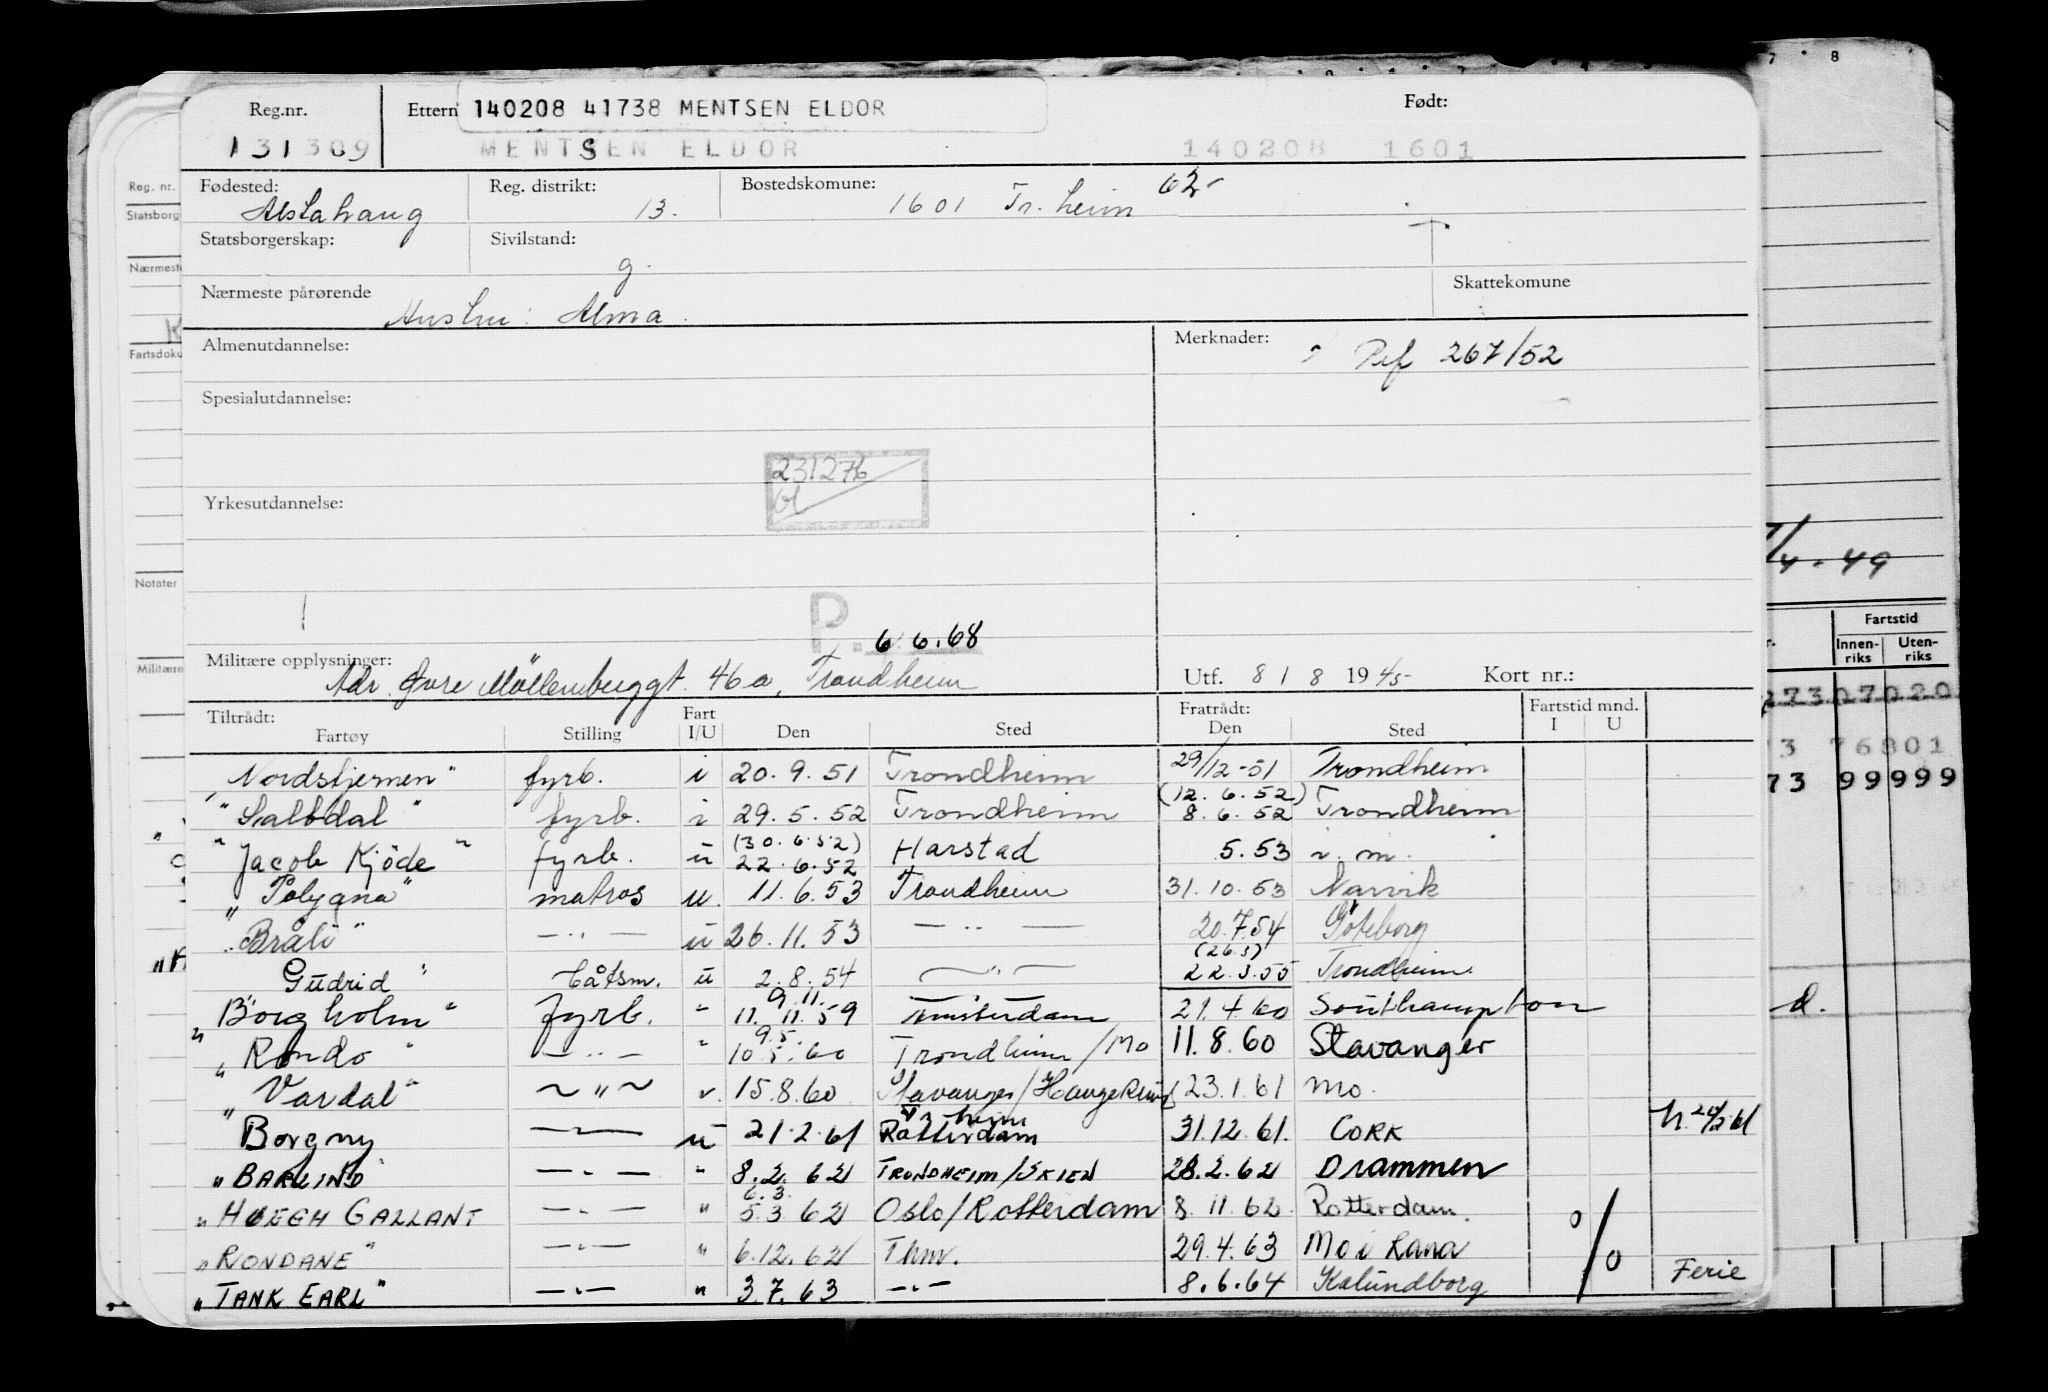 Reg.nr. Ettern 140208 41738 MENTSEN ELDOR Født:
131309 MENTSEN ELDOR 140208 1601
Fødested: Reg. distrikt: Bostedskomune: 62-
Alstahaug 13. 1601 Tr.heim
Statsborgerskap: Sivilstand:
g.
Nærmeste pårørende Skattekomune
Hustru: Alma.
Almenutdannelse: Merknader:
Pef 267/52
Spesialutdannelse:
231276
Yrkesutdannelse:
P. 6 6.68
Militære opplysninger:
Adr. Øvre Möllenbergt. 46a, Trondheim Utf. 8 / 8 1945- Kort nr.:
Tiltrådt: Fart Fratrådt: Fartstid mnd.
Fartøy Stilling I/U Den Sted Den Sted I U
"Nordstjernen" fyrb. i 20.9.51 Trondheim 29/12-51 Trondheim
(12.6.52)
"Saltdal" fyrb. i 29.5.52 Trondheim 8.6.52 Trondheim
(30.6.52)
"Jacob Kjöde" fyrb. u 22.6.52 Harstad 5.53 i.m.
"Polycana" matros u. 11.6.53 Trondheim 31.10.53 Narvik
"Bråli" —"— u 26.11.53 —"— 20.7.54 Göteborg
(26.3)
Gudrid" båtsm. u 2.8.54 —"— 22.3.55 Trondheim
9.11.
"Borgholm" fyrb. " 11.11.59 Amsterdam 21.4.60 Southampton
9.5.
"Rondo" —"— " 10.5.60 Trondheim/Mo 11.8.60 Stavanger
"Vardal" —"— 15.8.60 Stavanger/Haugesund 23.1.61 Mo.
Tr heim
"Borgny —"— u 21.2.61 Rotterdam 31.12.61. CORK
"BARLIND" —"— " 8.2.62 TRONDHEIM/SKIEN 28.2.62 Drammen
6.3.
"HØEGH GALLANT —"— " 5.3 62 Oslo/Rotterdam 8.11.62 Rotterdam. 0/
"RONDANE" —"— " 6.12.62 Thm. 29.4.63 Mo i Rana /0
"TANK EARL" —"— " 3.7.63 —"— 8.6.64 Kalundborg Ferie
Reg. nr.
Statsborg
Nærmeste
Fartsdoku
Notater
Militære
7 8
/4-49
Fartstid
Innen-riks Uten-riks
273 07020
3 76801
73 99999
d.